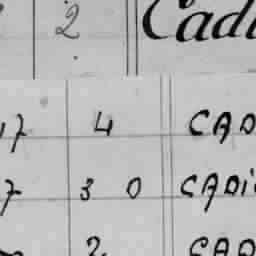 2 Cadi
17 4 CAD
7 3 0 CADi
2 CAD